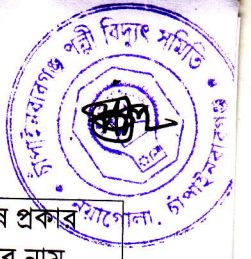 চাঁপাইনবাবগঞ্জ পল্লী বিদ্যুৎ সমিতি
নয়াগোলা, চাঁপাইনবাবগঞ্জ
ষ প্রকার
র নাম